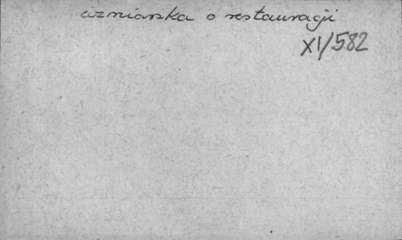 wzmianka o restauracji
XI/582